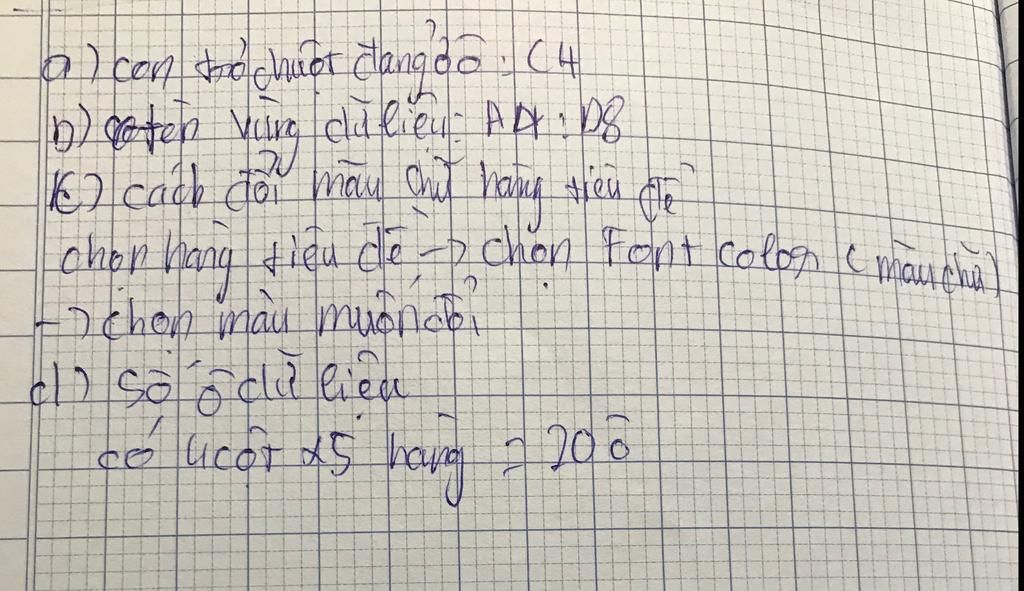 a) con trỏ chuột đang ở ô: C4
b) tên vùng dữ liệu: A4:D8
c) cách đổi màu chữ hàng tiêu đề
chọn hàng tiêu đề -> chọn Font color (màu chữ)
-> chọn màu muốn đổi
d) số ô dữ liệu
có 4 cột x5 hàng = 20 ô